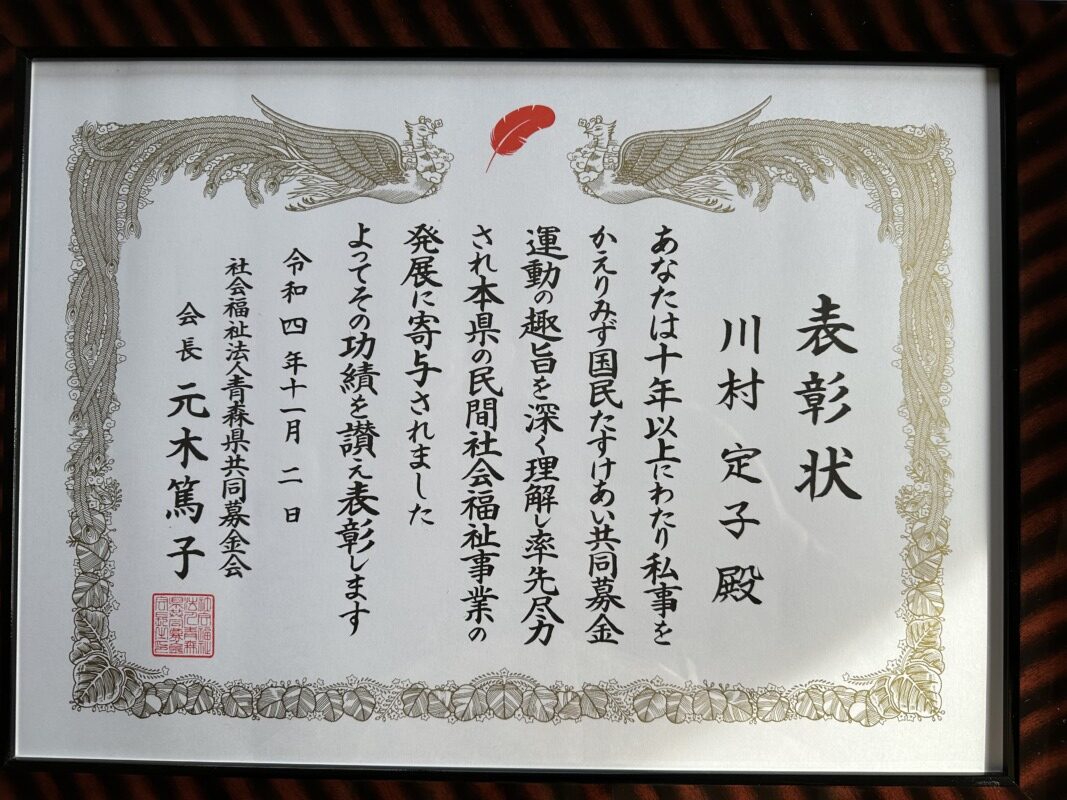 表彰状
川村定子殿
あなたは十年以上にわたり私事を
かえりみず国民たすけあい共同募金
運動の趣旨を深く理解し率先尽力
され本県の民間社会福祉事業の
発展に寄与されました
よってその功績を讃え表彰します
令和四年十一月二日
社会福祉法人青森県共同募金会
会長 元木篤子